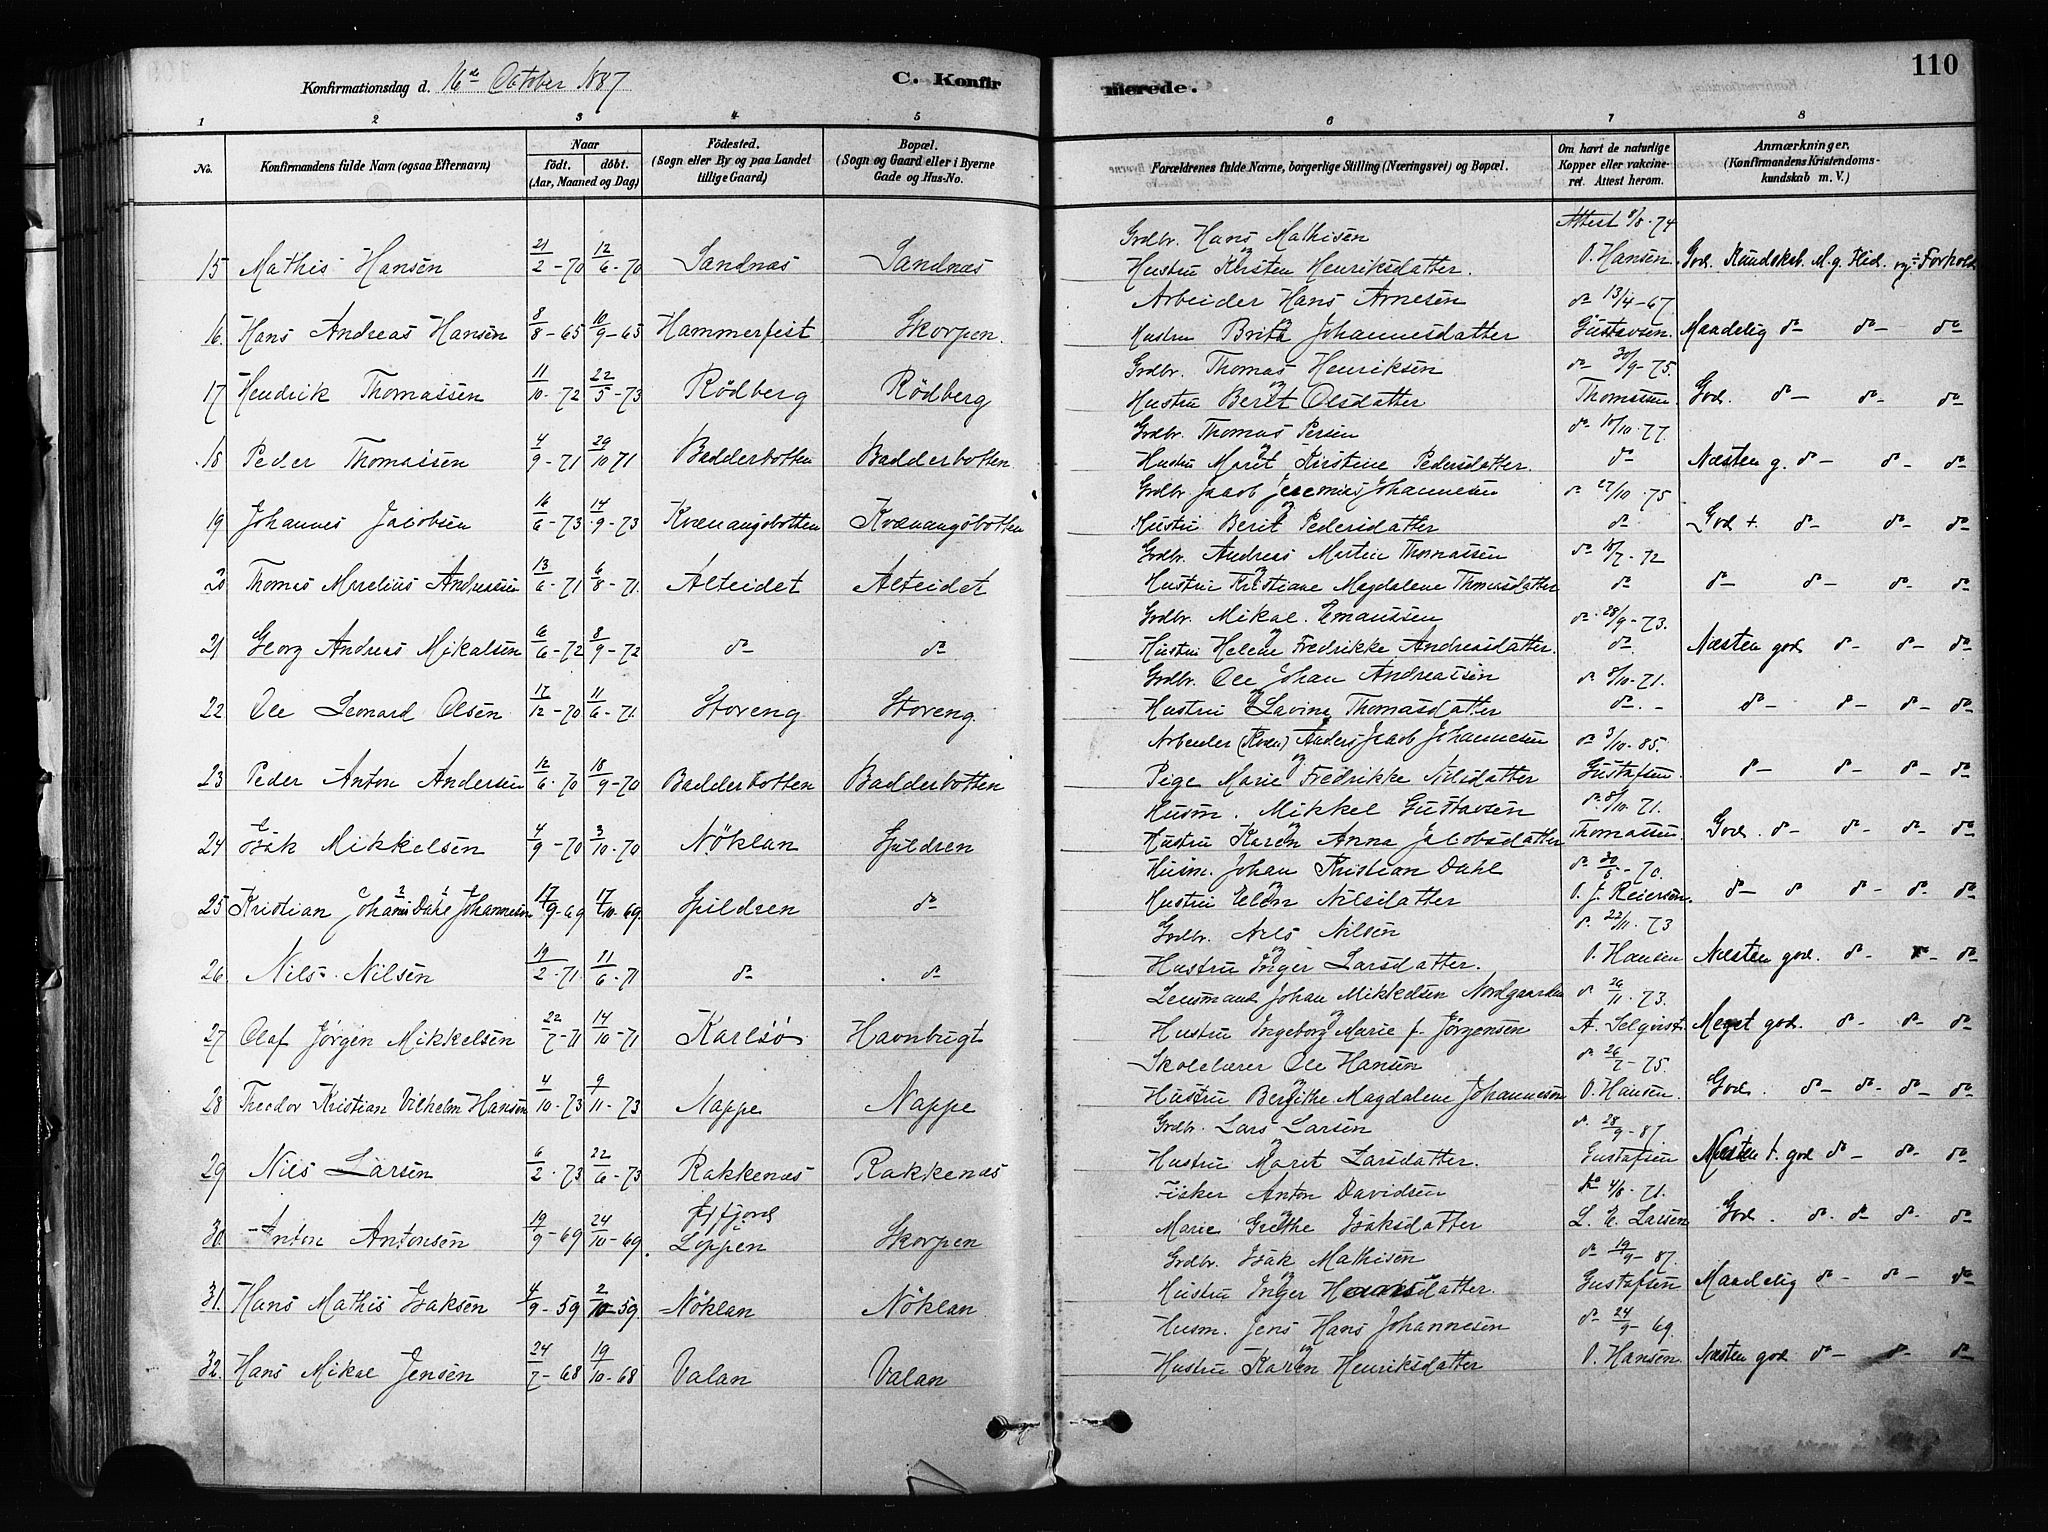 Konfirmationsdag d. 16de October 1887 C. Konfirmerede. 110
1 2 3 4 5 6 7 8
No. Konfirmandens fulde Navn (ogsaa Efternavn) Naar født. døbt. (Aar, Maaned og Dag) Födested. (Sogn eller By og paa Landet tillige Gaard) Bopæl. (Sogn og Gaard eller i Byerne Gade og Hus-No. Forældrenes fulde Navne, borgerlige Stilling (Næringsvei) og Bopæl. Om havt de naturlige Kopper eller vakcineret. Attest herom. Anmærkninger. (Konfirmandens Kristendomskundskab m. V.)
Grdbr. Hans Mathisen Attest 8/8-74
15 Mathis Hansen 21/2-70 12/6-70 Sandnæs Sandnæs Hustru Kirsten Henriksdatter. O. Hansen. God. Kundskab. M.g. Flid. og Forhold
Arbeider Hans Arnesen do 13/4-67
16. Hans Andreas Hansen 8/8-65 10/9-65 Hammerfest Skorpen. Hustru Brita Johannesdatter Gustavsen. Maadelig do do do
Grdbr. Thomas Henriksen do 30/9-75.
17 Hendrik Thomassen 11/10-72 22/5-73 Rödberg Rödberg Hustru Berit Olsdatter Thomassen. God. do do do
Grdbr. Thomas Persen do 10/10-77.
18 Peder Thomassen 4/9-71 29/10 71 Badderbotten Badderbotten. Hustru Marit Kirstine Pedersdatter. do Næsten g. do do do
Grdbr. Jacob Jeremias Johannesen do 27/10-75
19 Johannes Jacobsen 16/6-73 14/9-73 Kvænangsbotten Kvænangsbotten Hustru Berit Pedersdatter do God +. do do do
Grdbr. Andreas Martin Thomassen do 10/7-72
20 Thomas Marelius Andreassen 13/6-71 6/8-71. Alteidet Alteidet Hustru Kristiane Magdalene Thomasdatter do do do do do
Grdbr. Mikal Emaussen do 28/9-73.
21 Georg Andreas Mikalsen 6/6-72 8/9-72 do do Hustru Helene Fredrikke Andreasdatter. do Næsten god do do do
Grdbr. Ole Johan Andreassen do 8/10-71.
22 Ole Leonard Olsen 17/12-70 11/6-71. Storeng Storeng Hustru Lavina Thomasdatter do do do do do
Arbeider (Kvæn) Anders Jacob Johannesen do 3/10-85.
23 Peder Anton Andersen 12/6-70 18/9-70 Badderbotten Badderbotten Pige Marie Fredrikke Nilsdatter Gustafsen. do do do do
Husm. Mikkel Gustavsen do 8/10-71.
24 Isak Mikkelsen 4/9-70 3/10-70 Nöklan Spildren Hustru Karen Anna Jacobsdatter Thomassen. God. do do do do
Husm. Johan Kristian Dahl do 30/5-70.
25 Kristian Johan Dahl Johannesen 17/9-69 17/10-69. Spildren do Hustru Elen Nilsdatter O. J. Reiersen. do do do do do
Grdbr. Nils Nilsen do 22/11-73
26. Nils Nilsen 19/2-71. 11/6-71 do do Hustru Inger Larsdatter. O. Hansen Næsten god. do do do
Lensmand Johan Mikkelsen Nordgaarden do 26/11-73.
27 Olaf Jörgen Mikkelsen 22/7-71 14/10-71 Karlsö Havnbugt Hustru Ingeborg Marie f. Jörgensen A. Selqvist. Meget god. do do do
Skolelærer Ole Hansen do 26/7-75.
28 Theodor Kristian Vilhelm Hansen 4/10-73 9/11-73 Nappe Nappe Hustru Bergithe Magdalene Johannesen O. Hansen. God. do do do do
Grdbr. Lars Larsen do 28/9-87
29 Nils Larsen 6/2-73 22/6-73 Rakkenæs Rakkenæs Hustru Marit Larsdatter. Gustafsen Næsten +. god do do do
Fisker Anton Davidsen do 4/8-71.
30. Anton Antonsen 19/9-69 24/10-69. Öxfjord i Loppen Skorpen Marie Grethe Isaksdatter L. E. Larsen God. do. do do do
Grdbr. Isak Mathisen do 19/9-87.
31. Hans Mathis Isaksen 4/9-59 2/10-59. Nöklan Nöklan Hustru Inger Hansdatter. Gustafsen Maadelig do do do
Husm. Jens Hans Johannesen do 24/9-69.
32. Hans Mikal Jensen 24/7-68 19/10-68 Valan Valan Hustru Karen Henriksdatter O. Hansen. Næsten god do do do